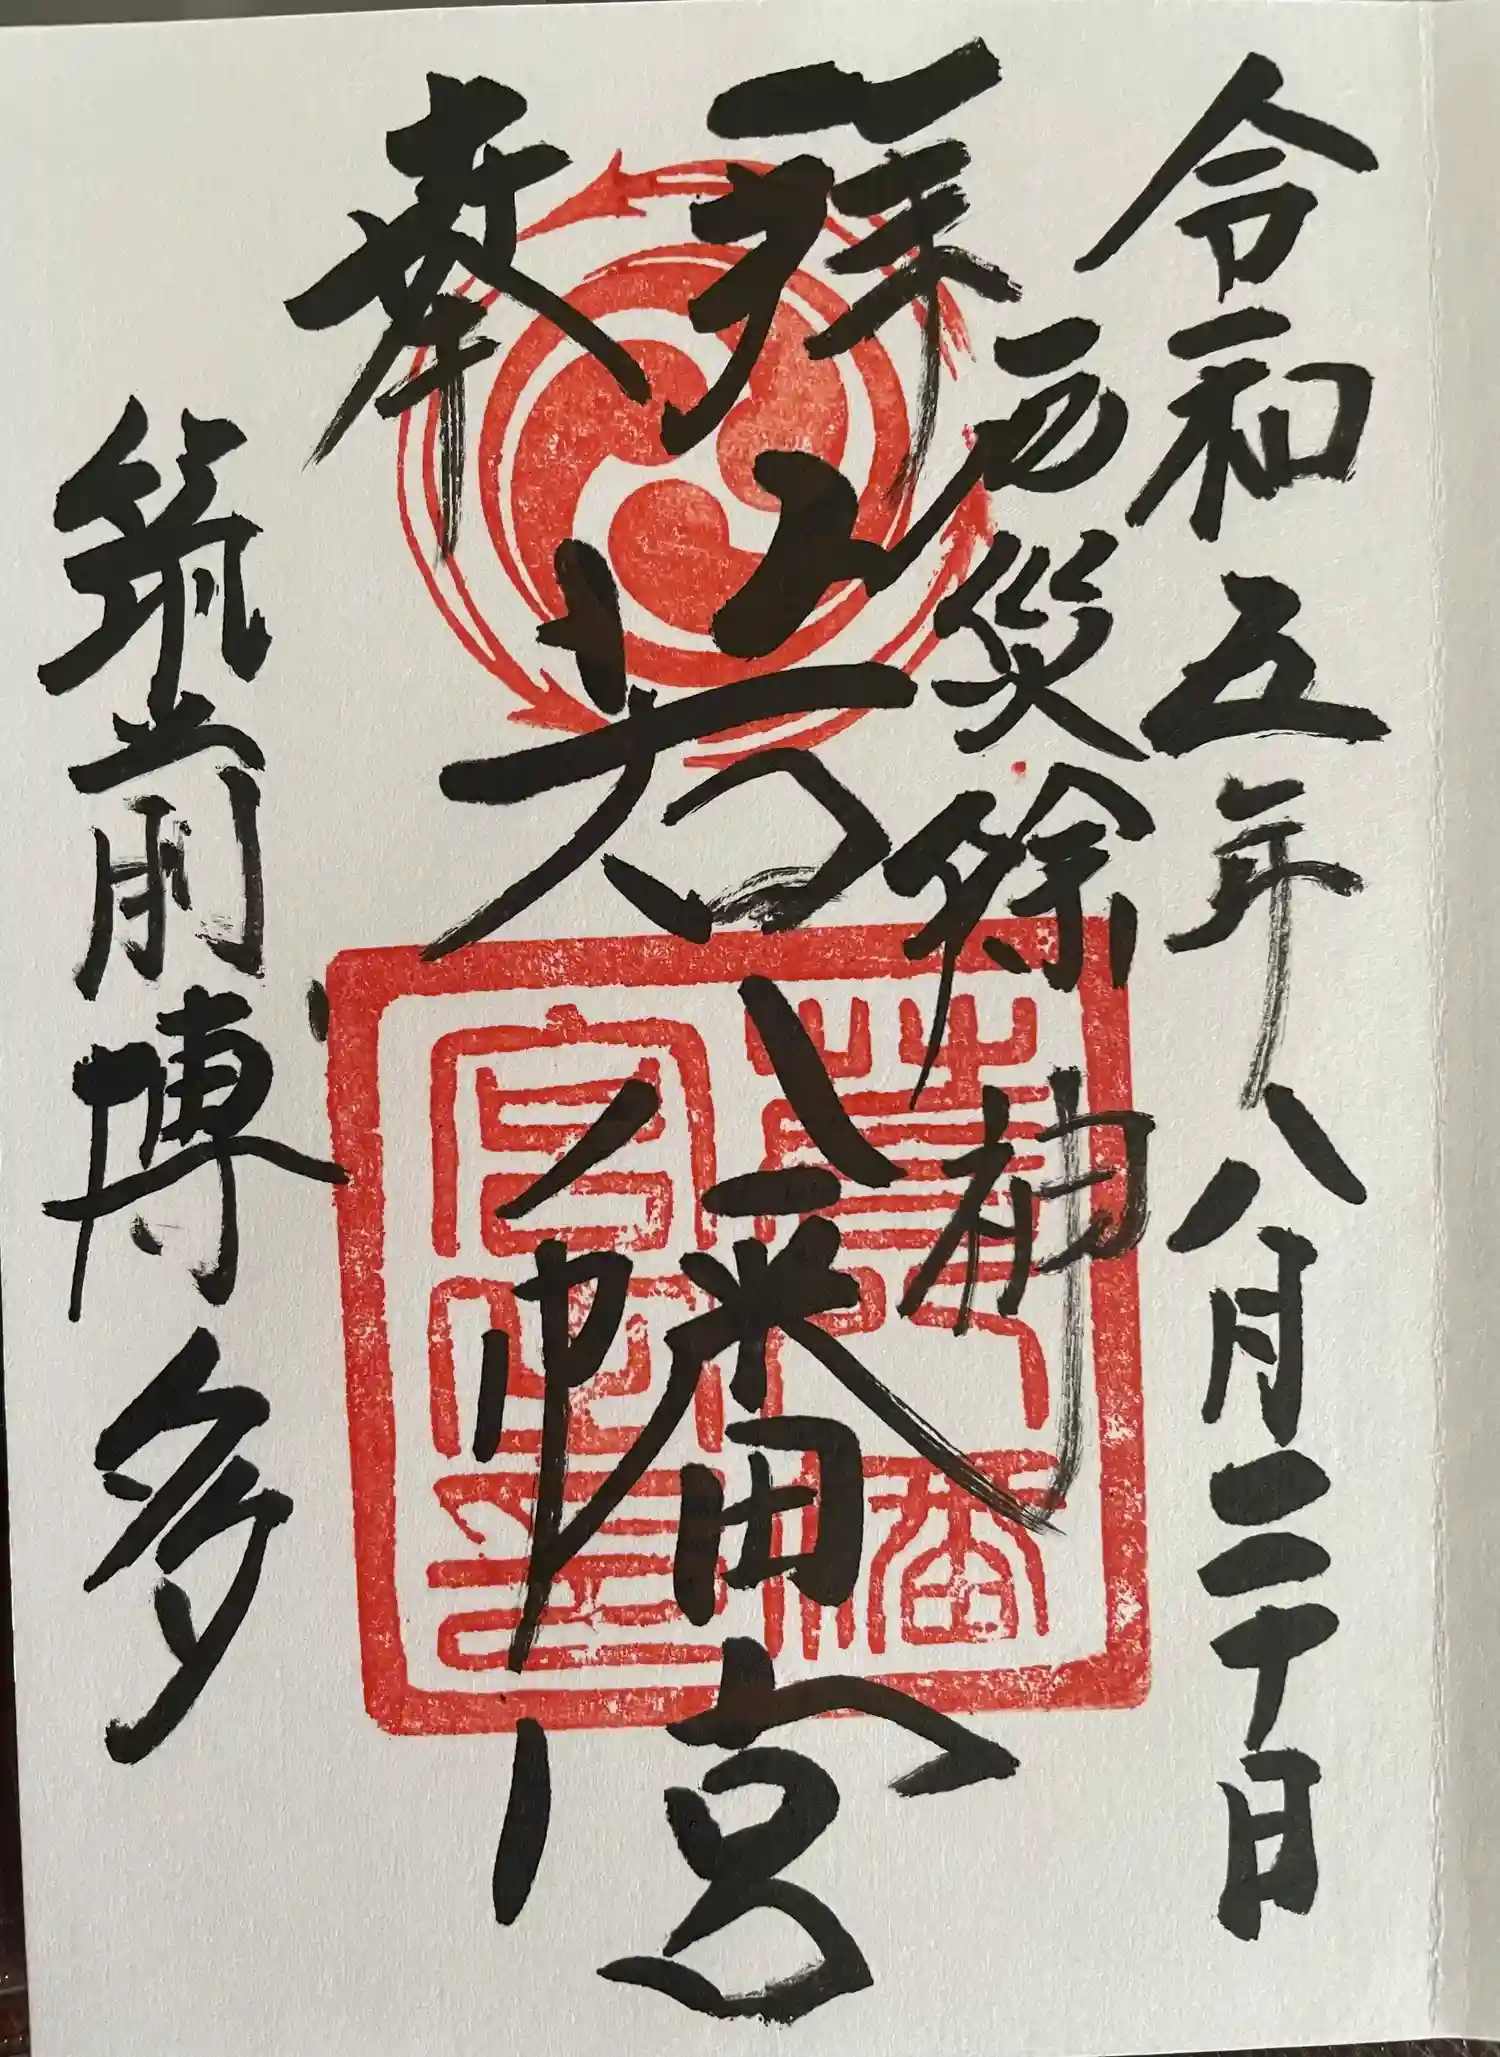 令和五年八月二十日
厄災除
奉拝
若八幡宮
筑前博多
若八幡
宮之印